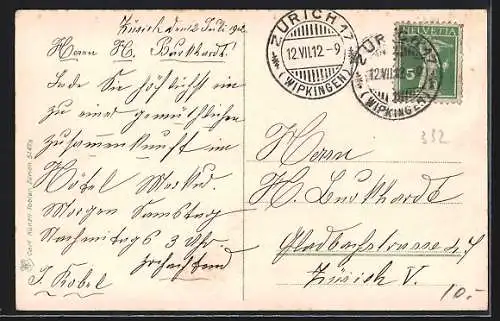 Zürich den 12 Juli 1912
Herrn H. Burkhardt!
Lade Sie höflichst in
zu einer gemüthlichen
Zusammenkunft im
Hôtel Merkur.
Morgen Samstag
Nachmittags 3 Uhr
Hochachtend
J. Kobel
ZÜRICH 17
12.VII.12-9
(WIPKINGEN)
HELVETIA
5
ZÜRICH 17
12.VII.12
(WIPKINGEN)
382
Herrn
H. Burkhardt
Gladbachstrasse
Zürich V.
10.-